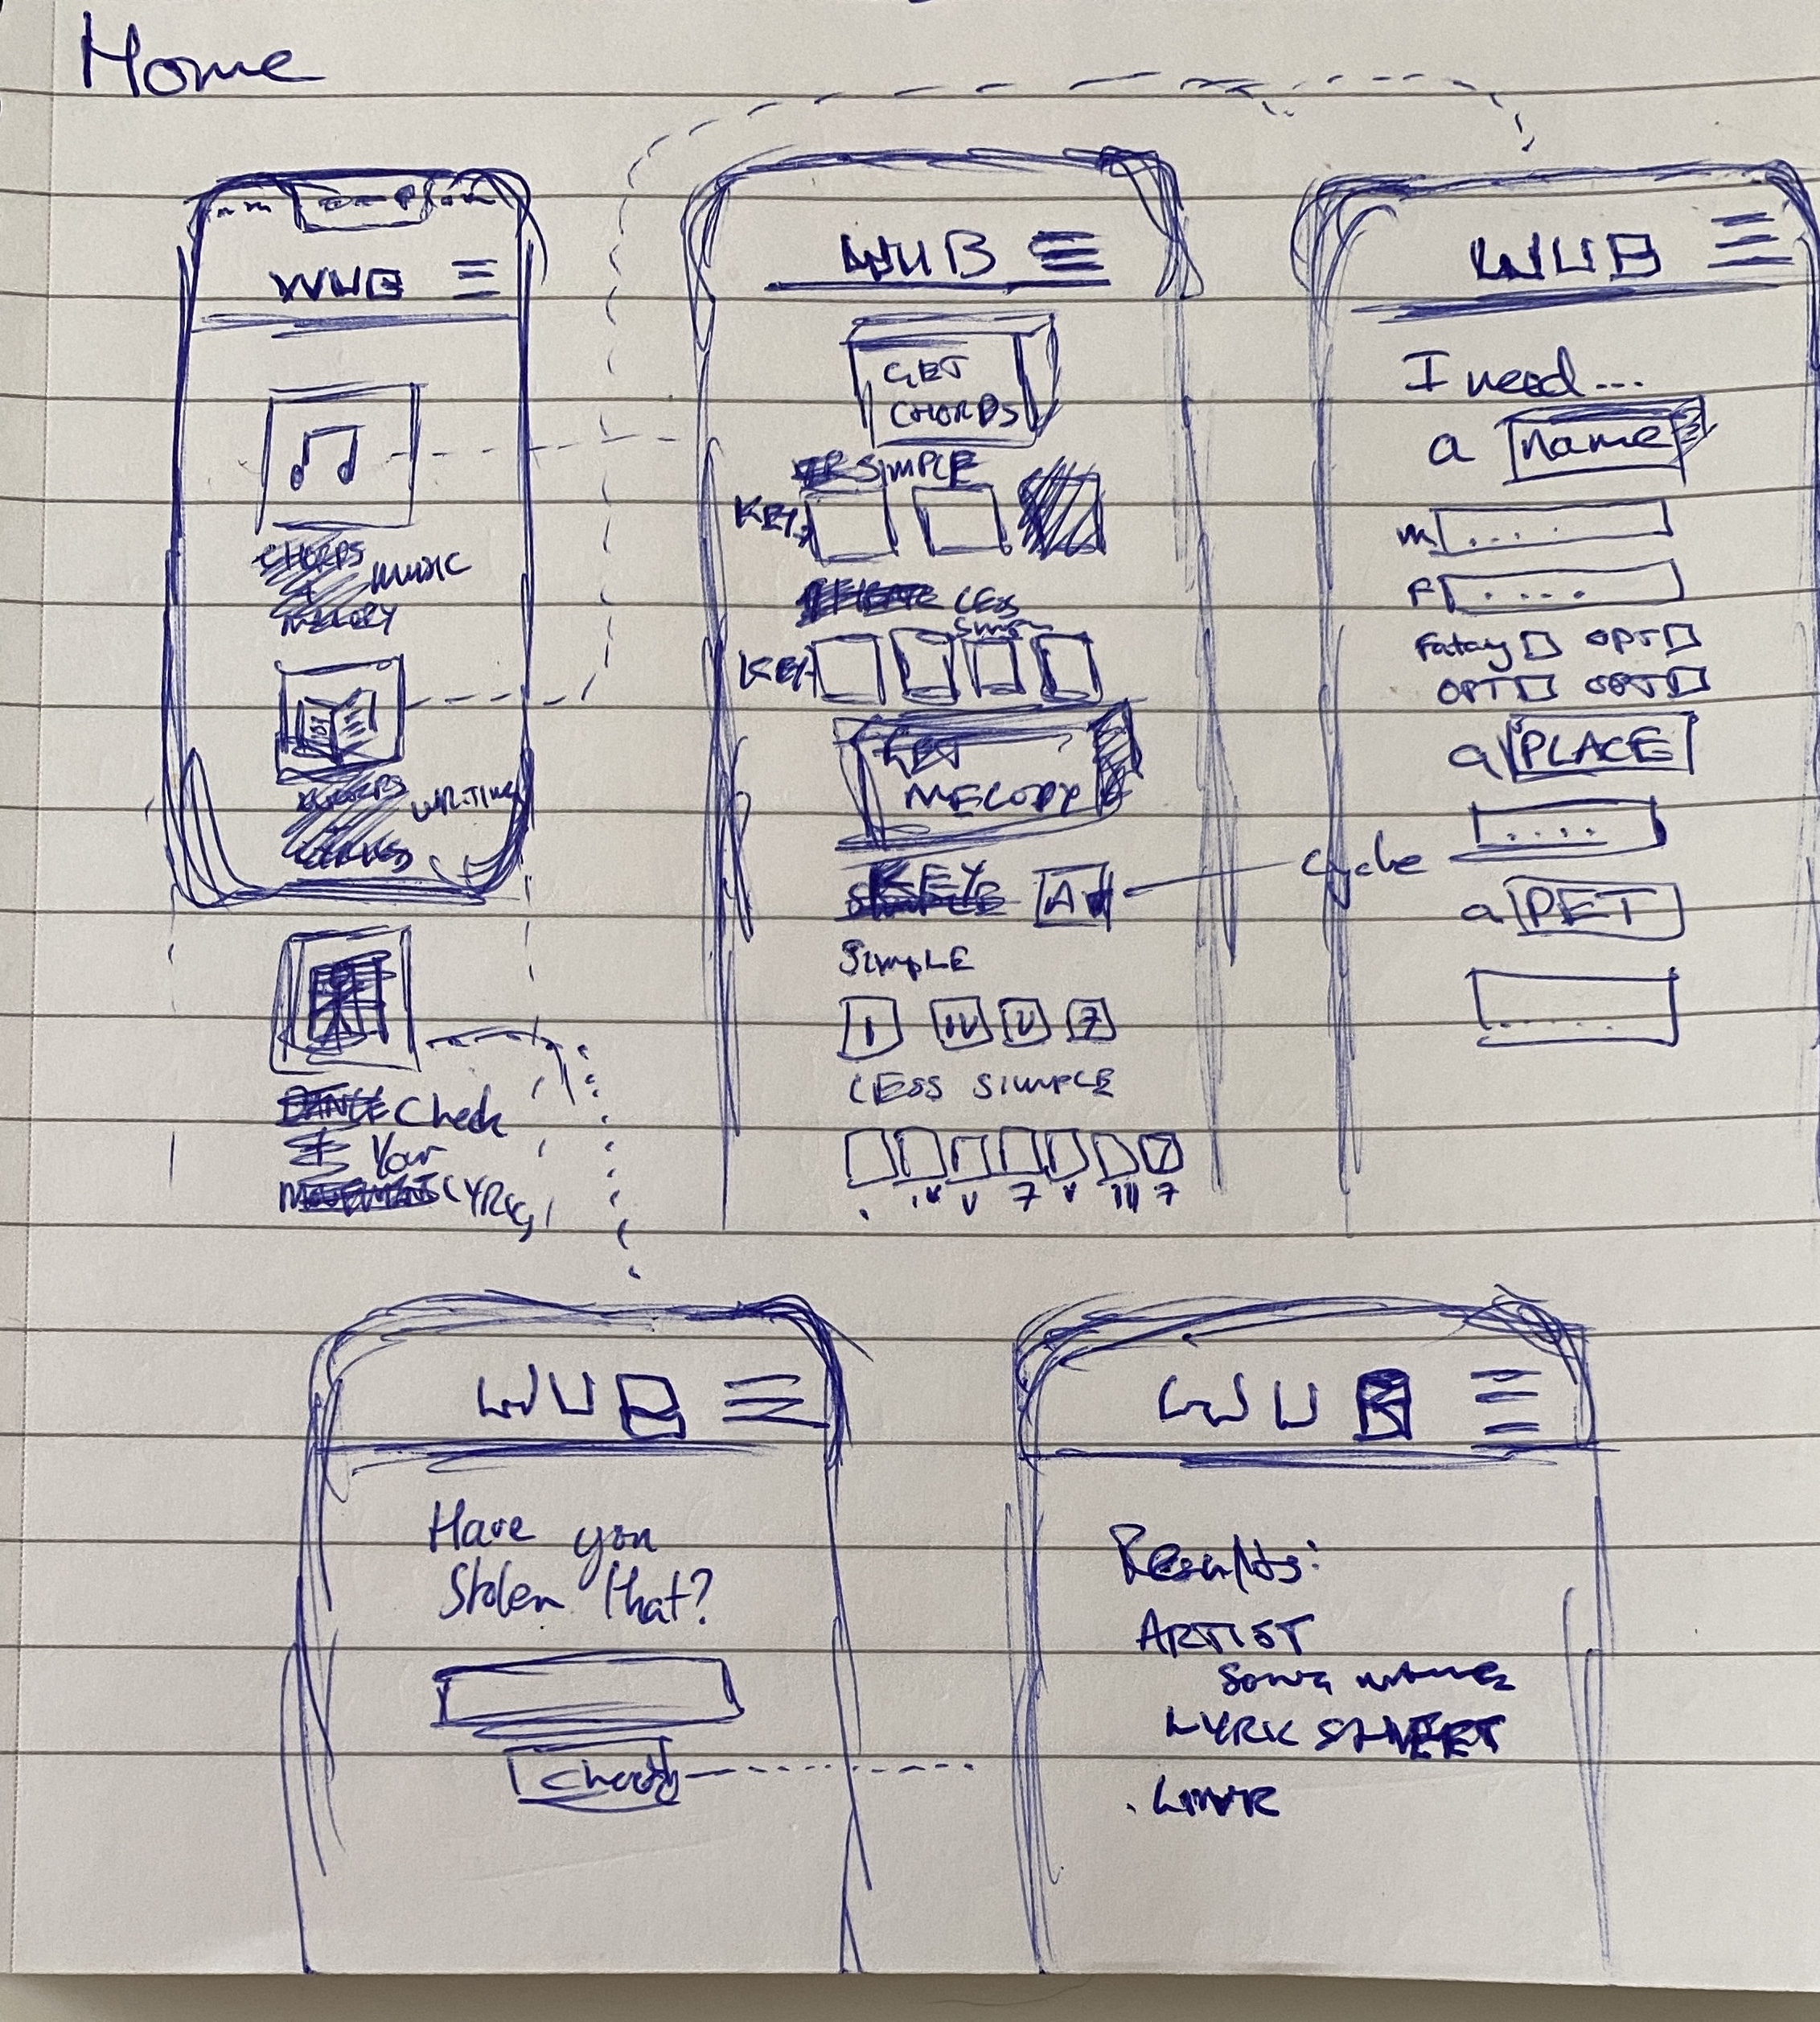 Home
WUB
MUSIC
WRITING
Check
Your
LYRICS
WUB
GET
CHORDS
SIMPLE
KEY
LESS
KEY
GET
MELODY
KEY A
cycle
SIMPLE
I IV V 7
LESS SIMPLE
IV V 7 V III 7
WUB
I need...
a name
m ....
F ....
OPT
OPT OPT
a PLACE
....
a PET
......
WUB
Have you
Stolen that?
Check
WUB
Results:
ARTIST
SONG NAME
LYRIC SHEET
LINK